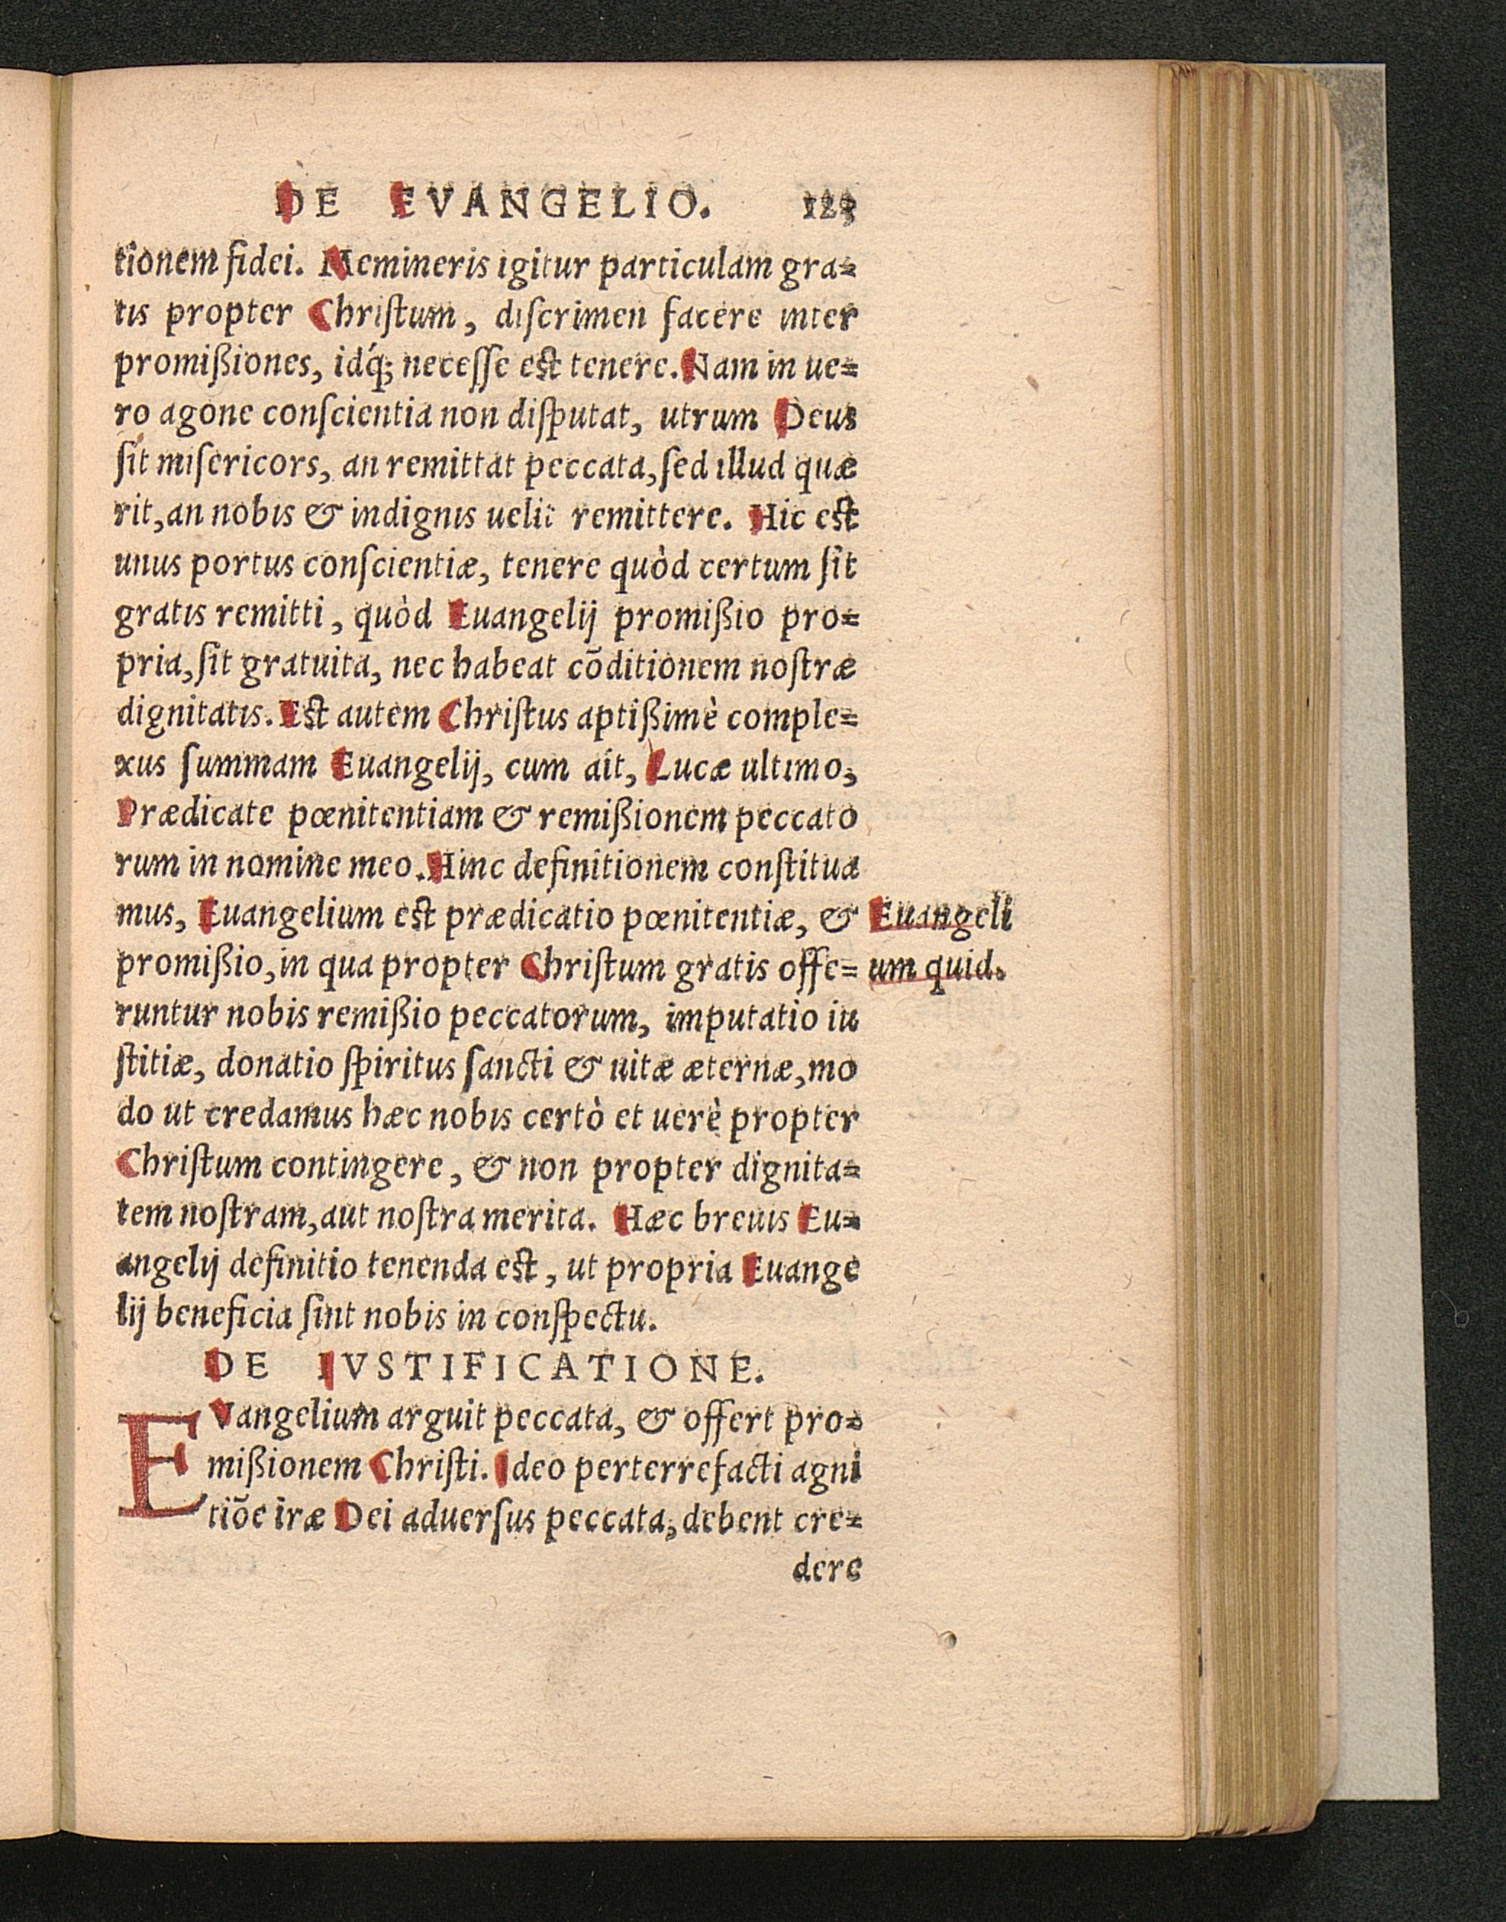 DE EVANGELIO. 129
tionem fidei. Memineris igitur particulam gra=
tis propter Chriſtum, diſcrimen facere inter
promißiones, idq́; neceſſe est tenere. Nam in ue=
ro agone conſcientia non diſputat, utrum Deus
ſit miſericors, an remittat peccata, ſed illud quæ
rit, an nobis & indignis uelit remittere. Hic est
unus portus conſcientiæ, tenere quòd certum ſit
gratis remitti, quòd Euangelij promißio pro=
pria, ſit gratuita, nec habeat cōditionem noſtræ
dignitatis. Est autem Chriſtus aptißimè comple=
xus ſummam Euangelij, cum ait, Lucæ ultimo,
Prædicate pœnitentiam & remißionem peccato
rum in nomine meo. Hinc definitionem conſtitua
mus, Euangelium est prædicatio pœnitentiæ, &
promißio, in qua propter Chriſtum gratis offe=
runtur nobis remißio peccatorum, imputatio iu
ſtitiæ, donatio ſpiritus ſancti & uitæ æternæ, mo
do ut credamus hæc nobis certò et uerè propter
Chriſtum contingere, & non propter dignita=
tem noſtram, aut noſtra merita. Hæc breuis Eu=
angelij definitio tenenda est, ut propria Euange
lij beneficia ſint nobis in conſpectu.
Euangeli
um quid.
DE IVSTIFICATIONE.
EVangelium arguit peccata, & offert pro=
mißionem Chriſti. Ideo perterrefacti agni
tiōe iræ Dei aduerſus peccata, debent cre=
dere